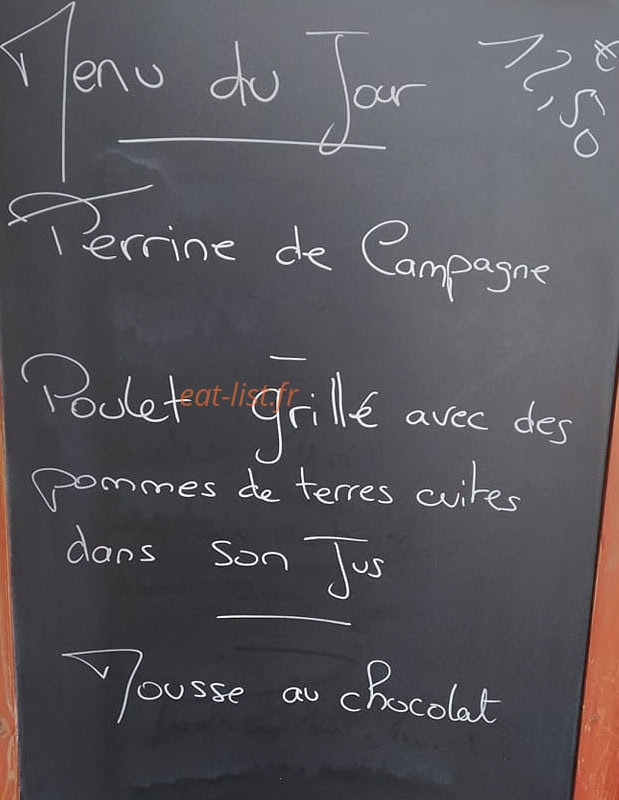 Menu du Jour
12,50 €
Terrine de Campagne
Poulet grillé avec des
pommes de terres cuites
dans son Jus
Mousse au chocolat
eat-list.fr